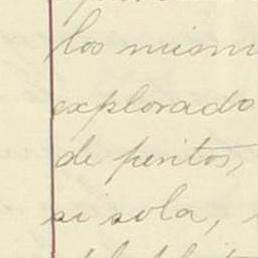 los mism
explorado
de peritos,
si sola,